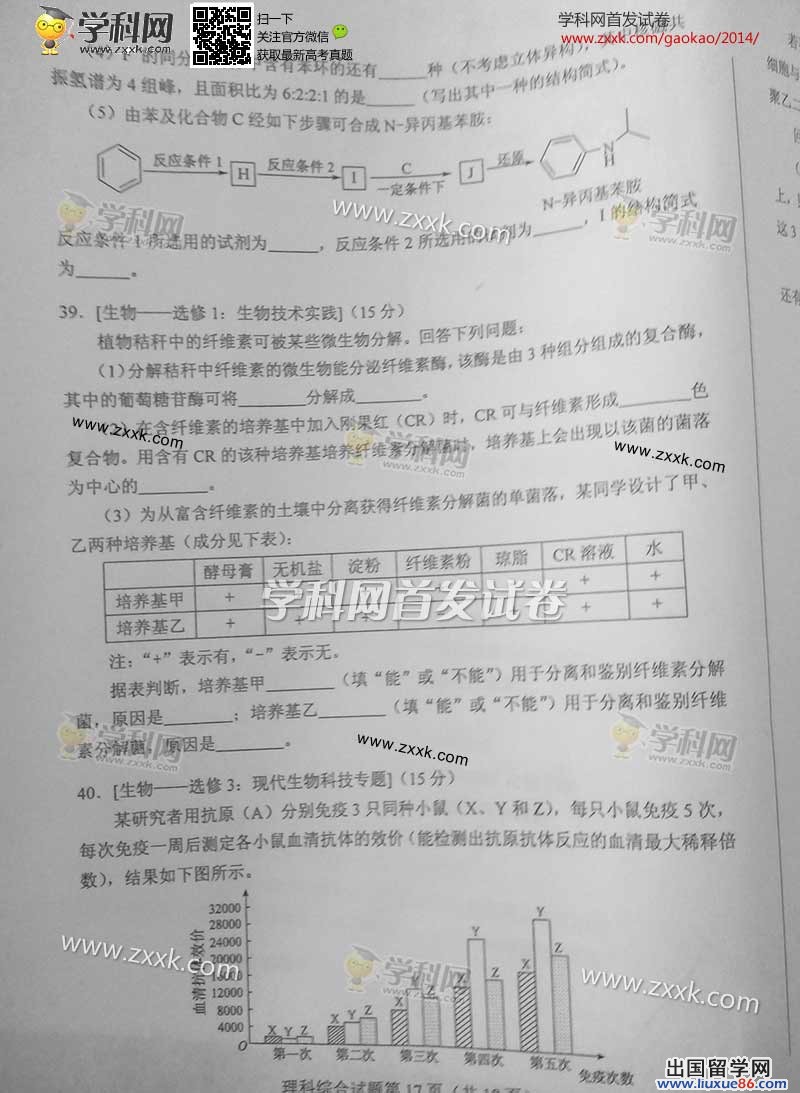 学科网 扫一下 学科网首发试卷
www.zxxk.com 关注官方微信 www.zxxk.com/gaokao/2014/
获取最新高考真题
含有苯环的还有______种（不考虑立体异构），
振氢谱为4组峰，且面积比为6:2:2:1的是______（写出其中一种的结构简式）。
（5）由苯及化合物C经如下步骤可合成N-异丙基苯胺：
反应条件1 H 反应条件2 I C 一定条件下 J 还原 N H
N-异丙基苯胺
学科网 www.zxxk.com
www.zxxk.com
反应条件1所选用的试剂为______，反应条件2所选用的试剂为______，I的结构简式
为______。
39．[生物——选修1：生物技术实践]（15分）
植物秸秆中的纤维素可被某些微生物分解。回答下列问题：
（1）分解秸秆中纤维素的微生物能分泌纤维素酶，该酶是由3种组分组成的复合酶，
其中的葡萄糖苷酶可将______分解成______。
www.zxxk.com
（2）在含纤维素的培养基中加入刚果红（CR）时，CR可与纤维素形成______色
复合物。用含有CR的该种培养基培养纤维素分解菌时，培养基上会出现以该菌的菌落
www.zxxk.com
为中心的______。
（3）为从富含纤维素的土壤中分离获得纤维素分解菌的单菌落，某同学设计了甲、
乙两种培养基（成分见下表）：
酵母膏 无机盐 淀粉 纤维素粉 琼脂 CR溶液 水
培养基甲 + + +
学科网首发试卷
培养基乙 + + + + +
注：“+”表示有，“-”表示无。
据表判断，培养基甲______（填“能”或“不能”）用于分离和鉴别纤维素分解
菌，原因是______；培养基乙______（填“能”或“不能”）用于分离和鉴别纤维
素分解菌，原因是______。
www.zxxk.com
学科网 www.zxxk.com
40．[生物——选修3：现代生物科技专题]（15分）
某研究者用抗原（A）分别免疫3只同种小鼠（X、Y和Z），每只小鼠免疫5次，
每次免疫一周后测定各小鼠血清抗体的效价（能检测出抗原抗体反应的血清最大稀释倍
数），结果如下图所示。
血清抗体效价
32000
28000
24000
20000
16000
12000
8000
4000
O
X Y Z X Y Z X Y Z X Y Z X Y Z
第一次 第二次 第三次 第四次 第五次 免疫次数
www.zxxk.com
学科网 www.zxxk.com
www.zxxk.com
理科综合试题第17页
出国留学网
www.liuxue86.com
细胞与
聚乙二
上，
这3
还有